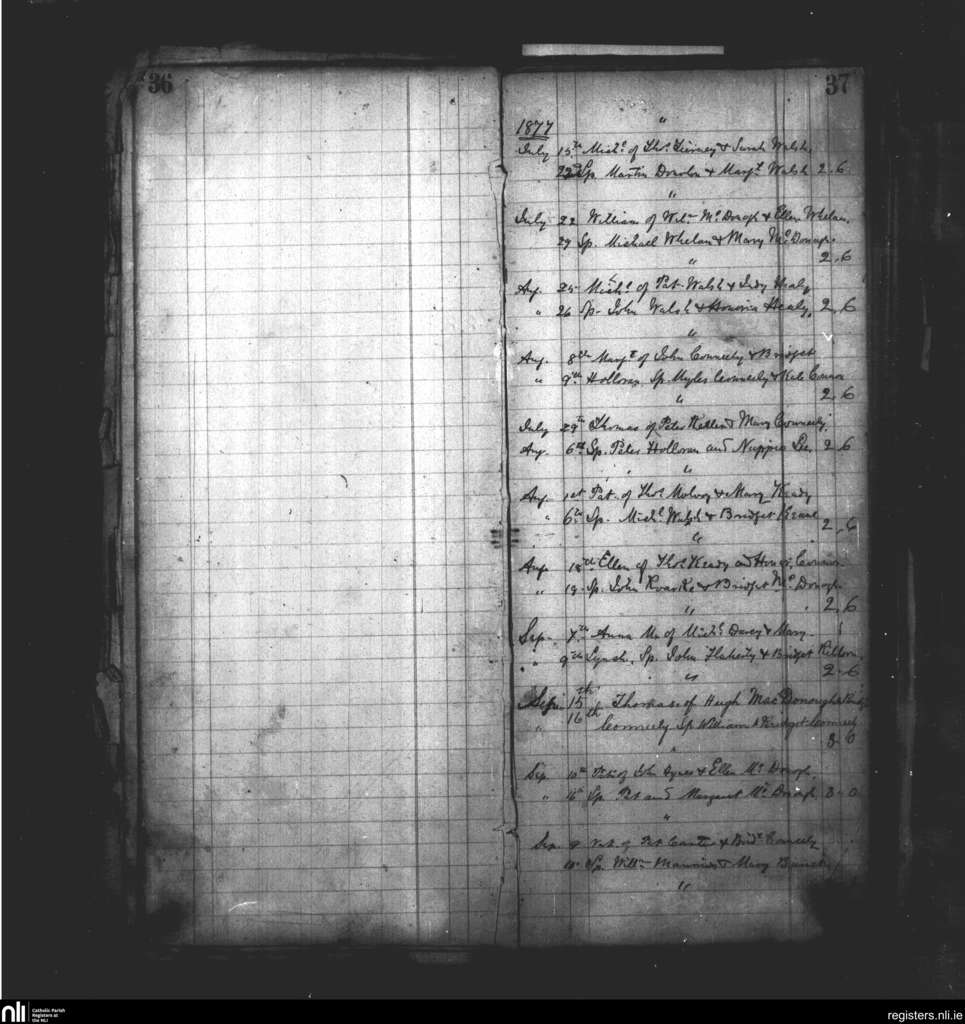 36
37
1877
July 15th Michl of Thos Tierney & Sarah Walsh
22nd Sp. Martin & Margt Walsh 2.6
July 22 William of Wilm McDonogh & Ellen Whelan.
29 Sp. Michael Whelan & Mary McDonagh.
2.6
Aug. 25 Michl of Pat Walsh & Judy Healy
" 26 Sp. John Walsh & Honoria Healy, 2.6
Aug. 8th Margt of John Conneely & Bridget
" 9th Holloran Sp. Myles Conneely & Kate Connor
2.6
July 29th Thomas of Peter & Mary Conneely.
Aug. 6th Sp. Peter Holloran and Nappie Lee, 2.6
Aug 1st Pat. of Thos & Mary Keady
" 6th Sp. Michl Walsh & Bridget
2.6
Aug 18th Ellen of Thos Keady and Connor.
" 19. Sp. John Roarke & Bridget McDonogh
2.6
Sep. 7th Anna M. of Michl Davey & Mary
" 9th Lynch. Sp. John Flaherty & Bridget
2.6
Sep. 15th Thomas of Hugh MacDonough &
" 16th Conneely Sp William & Bridget Conneely
3.0
Sep. 10th of John & Ellen McDonogh.
" 16th Sp. Pat and Margaret McDonogh 3.0
Sep 8 Pat. of Pat & Bridt
10 Sp. Willm Mannion & Mary
nli
Catholic Parish
Registers at
the NLI
registers.nli.ie